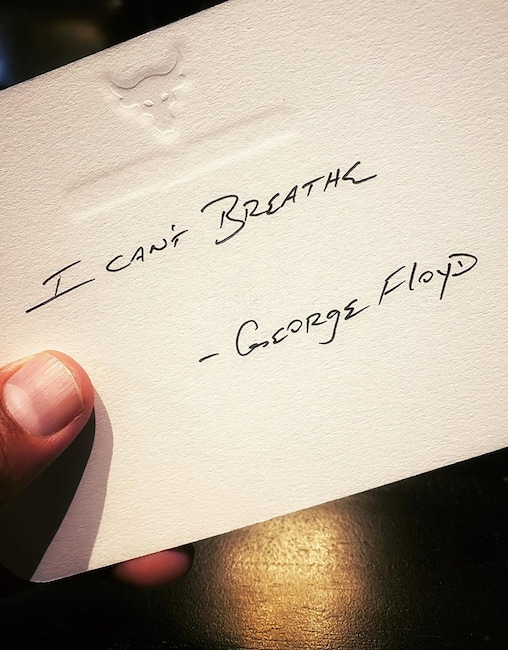 I CAN'T BREATHE
- GEORGE FLOYD